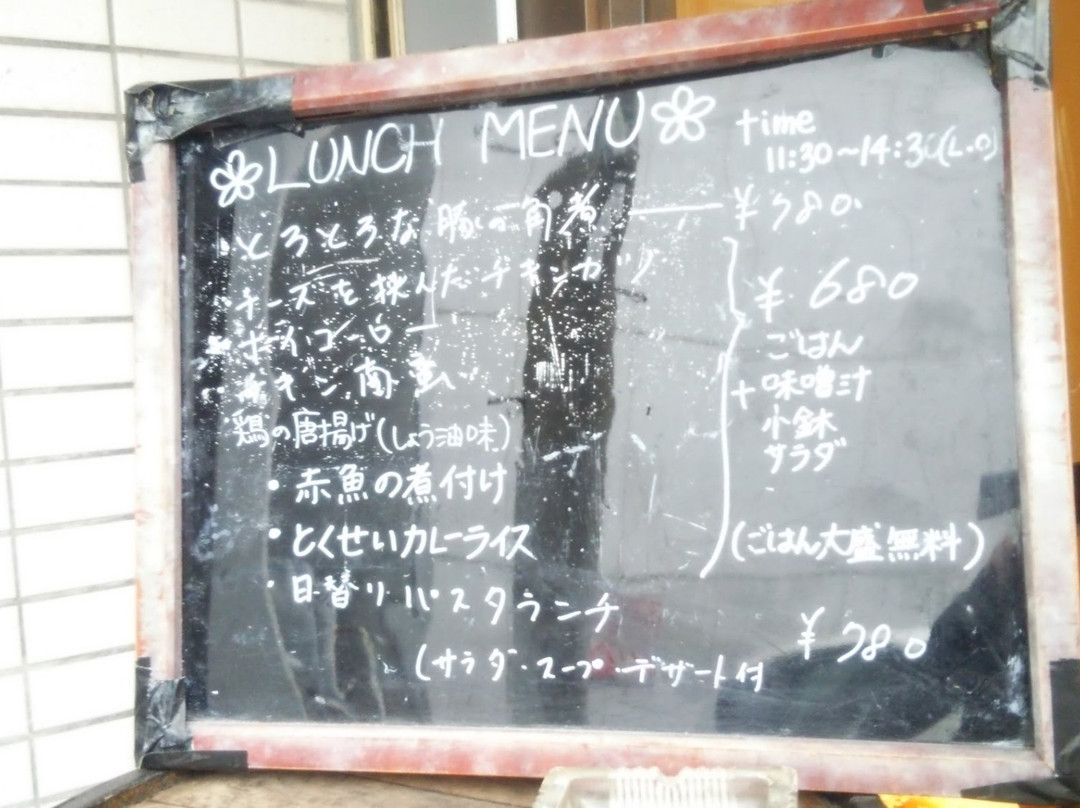 LUNCH MENU
time
11:30～14:30(L.O)
・とろとろな豚の角煮 ―― ¥780
・チーズを挟んだチキンカツ
・ホイコーロー
チキン南蛮
鶏の唐揚げ(しょう油味)
・赤魚の煮付け
・とくせいカレーライス
¥680
ごはん
+味噌汁
小鉢
サラダ
(ごはん大盛無料)
・日替り パスタランチ
¥780
(サラダ・スープ・デザート付